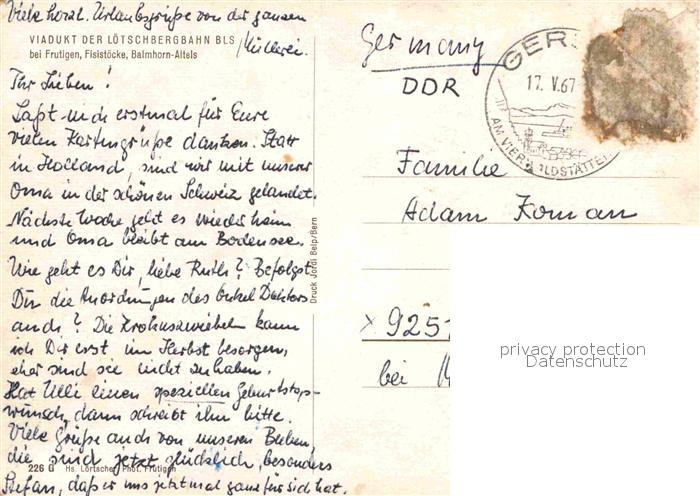 Viele herzl. Urlaubsgrüße von der ganzen
Müllerei.
VIADUKT DER LÖTSCHBERGBAHN BLS
bei Frutigen, Fisistöcke, Balmhorn-Altels
Ihr Lieben!
Laßt mich erstmal für Eure
vielen Kartengrüße danken. Statt
in Holland, sind wir mit unserer
Oma in der schönen Schweiz gelandet.
Nächste Woche geht es wieder heim
und Oma bleibt am Bodensee.
Wie geht es Dir, liebe Ruth? Befolgst
Du die Anordnungen des Onkel Doktors
auch? Die Krokuszwiebeln kann
ich Dir erst im Herbst besorgen,
eher sind sie nicht zu haben.
Hat Ulli einen speziellen Geburtstags-
wunsch, dann schreibt ihn bitte.
Viele Grüße auch von unseren Buben,
die sind jetzt glücklich, besonders
Stefan, daß er uns jetzt mal ganz für sich hat.
226 G Hs. Lörtscher, Phot. Frutigen
Druck Jordi Belp/Bern
Germany
DDR
GER
17. V. 67
AM VIERWALDSTÄTTE
Familie
Adam Koman
x 925
bei
privacy protection
Datenschutz